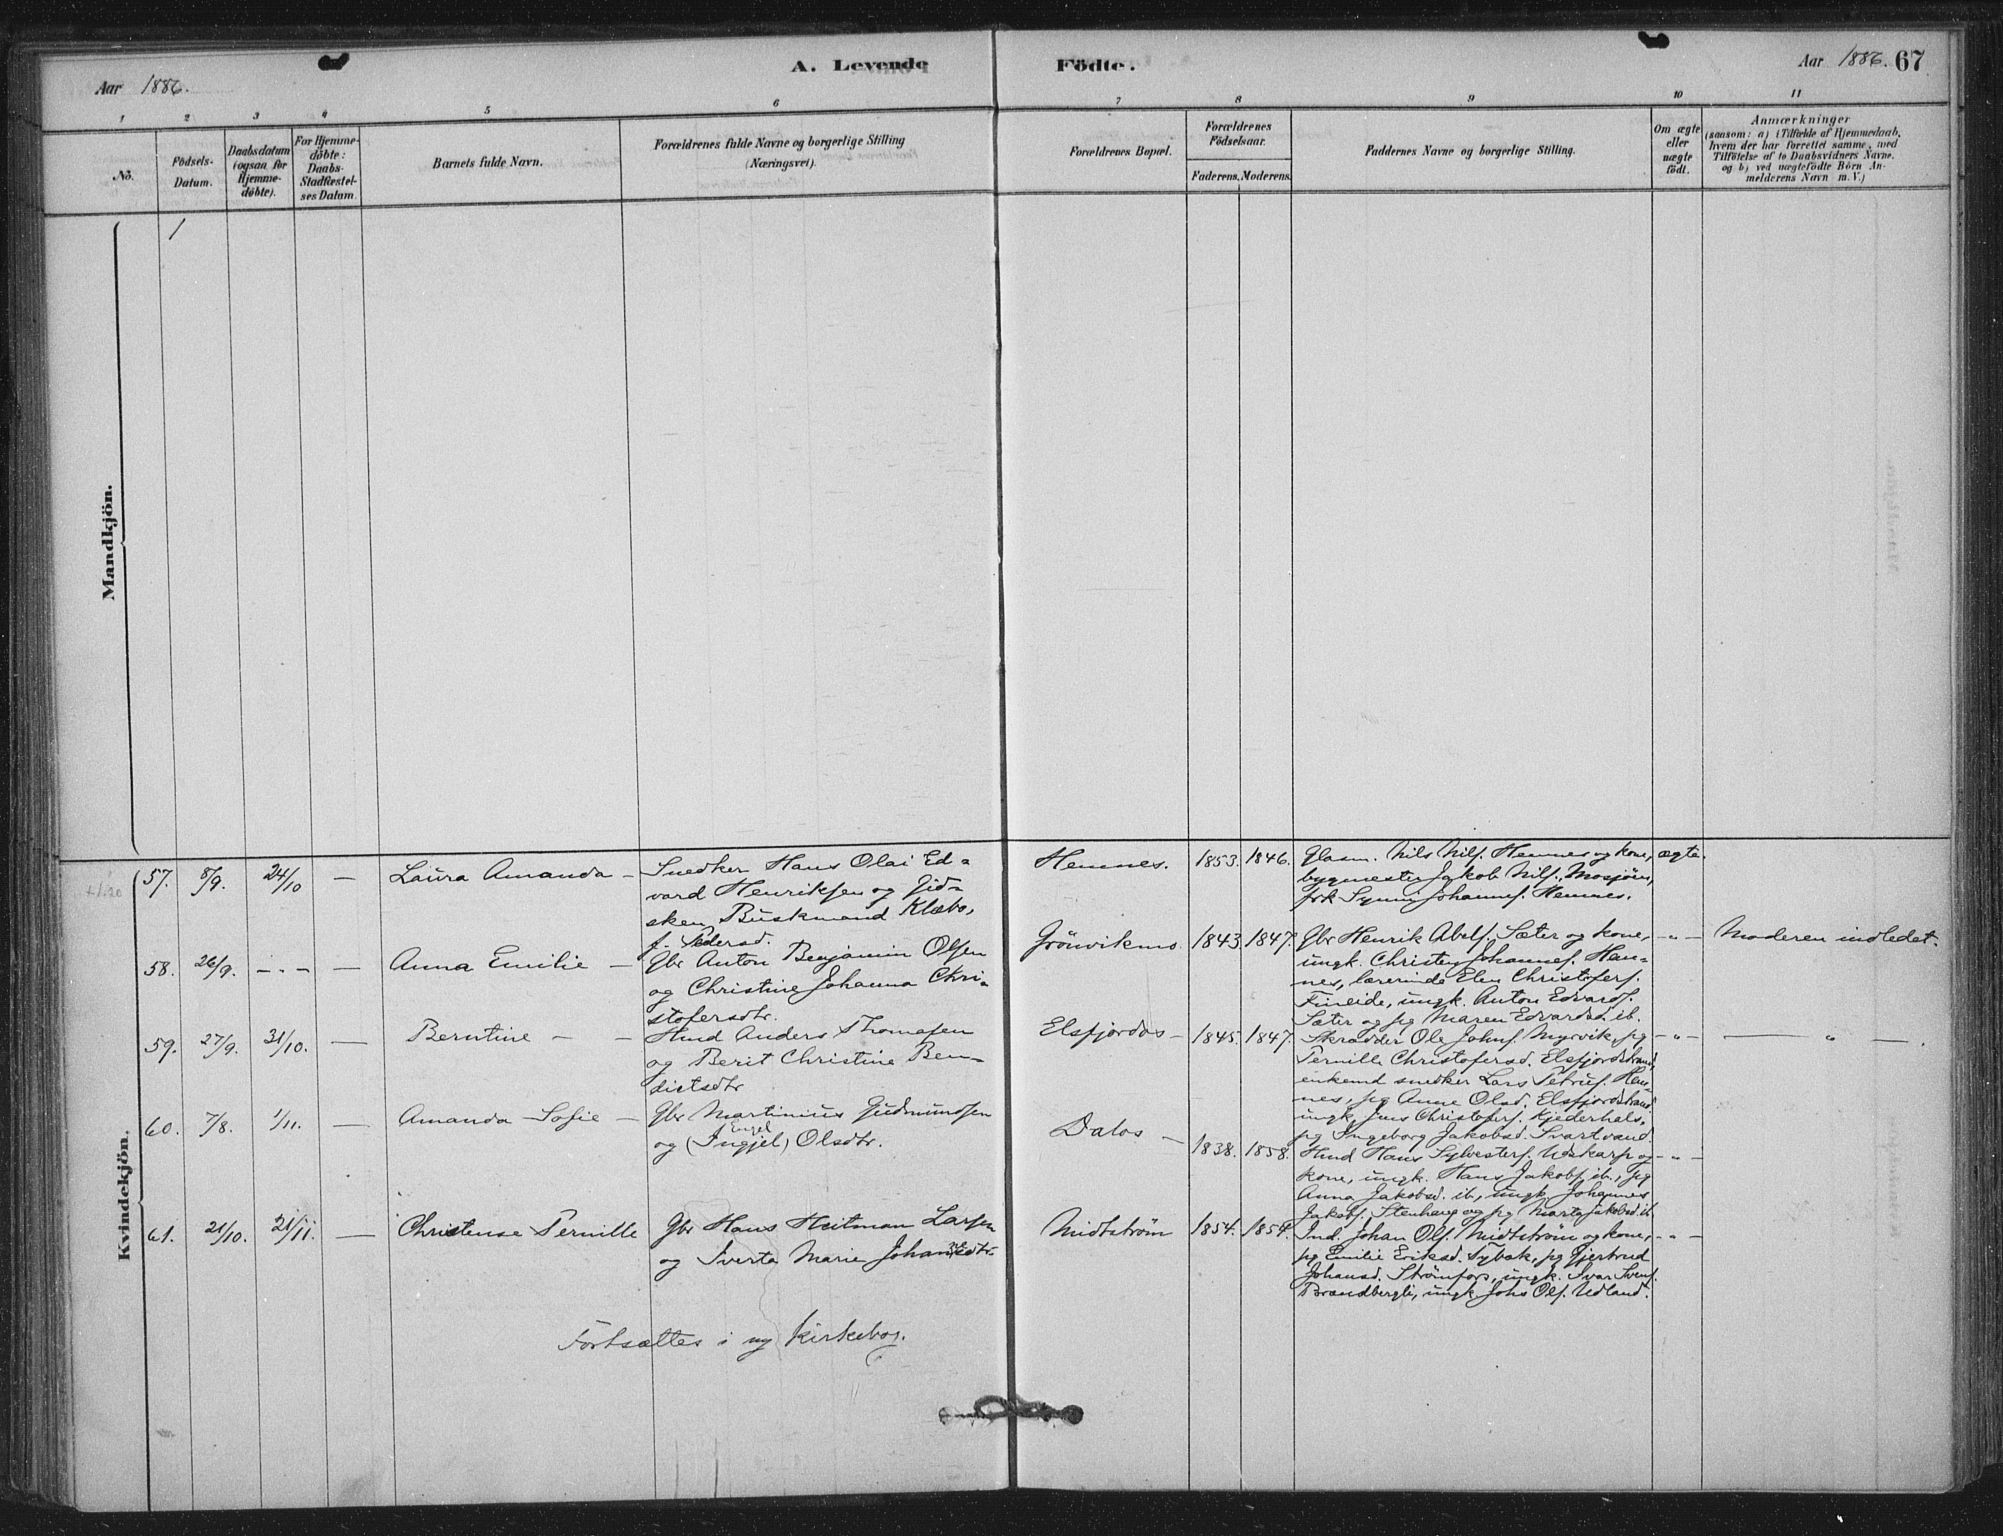 Aar 1886.
A. Levende
Födte.
Aar 1886. 67
1 2 3 4 5 6 7 8 9 10 11
No.
Födsels-
Datum.
Daabsdatum
(ogsaa for
Hjemme-
døbte).
For Hjemme-
døbte:
Daabs-
Stadfæstel-
ses Datum.
Barnets fulde Navn.
Forældrenes fulde Navne og borgerlige Stilling
(Næringsvei).
Forældrenes Bopæl.
Forældrenes
Födselsaar.
Faderens. Moderens.
Faddernes Navne og borgerlige Stilling.
Om ægte
eller
uægte
födt.
Anmærkninger
(saasom: a) i Tilfælde af Hjemmedaab,
hvem der har forrettet samme, med
Tilföielse af to Daabsvidners Navne.
og b) ved uægtefödte Börn An-
melderens Navn m. V.)
Mandkjön.
1
Kvindekjön.
57. 8/9. 24/10 — Laura Amanda —
Snedker Hans Olai Ed-
vard Henriksen og Gid-
sken Buskmand Klæbo,
f. Pedersd.
Hemnes. 1853. 1846.
Glasm. Nils Nilss. Hemnes og kone,
bygmester Jakob Nilss. Mosjøen,
frk Synni Johannes. Hemnes.
ægte.
58. 26/9. - - - — Anna Emilie —
Gbr Anton Benjamin Olsen
og Christine Johanna Chri-
stofersdtr.
Grönvikmo. 1843. 1847.
Gbr Henrik Abels. Sæter og kone,
ungk. Christen Johannes. Hem-
nes, lærerinde Elen Christofers.
Fineide, ungk. Anton Edvards.
Sæter og pg Maren Edvardsd. ib.
- " - Moderen indledet.
59. 27/9. 31/10. — Berntine — —
Hmd Anders Thomassen
og Berit Christine Ben-
dictsdtr
Elsfjordos — 1845. 1847.
Skrædder Ole Johns. Myrvik, pg
Pernille Christofersd. Elsfjordstrand,
enkemd snedker Lars Petrus. Hem-
nes, pg Anne Olsd. Elsfjordstrand
ungk. Jens Christofers. Kjederhals,
pg Ingeborg Jakobsd. Svartvand.
- " - — " — .
60. 7/8. 1/11. — Amanda Sofie —
Gbr Martinius Gudmundsen
Engel
og (Ingjel) Olsdtr.
Dalos — 1838. 1858.
Hmd Hans Sylvesters. Utskarp og
kone, ungk. Hans Jakobs. ib., pg
Anna Jakobsd. ib, ungk. Johannes
Jakobs. Stenhaug og pg Marta Jakobsd ib.
- " -
61. 21/10. 21/11. — Christense Pernille
Gbr Hans Heitman Larsen
og Sverta Marie Johansedtr.
Midtström 1854. 1854.
Ind. Johan Ols. Midtström og kone,
pg Emilie Eriksd. Sybæk, pg Gjertrud
Johansd. Strömfors, ungk. Ivar Svens.
Brændbergli, ungk. Johs Ols. Udland.
- " -
Fortsættes i ny Kirkebog.